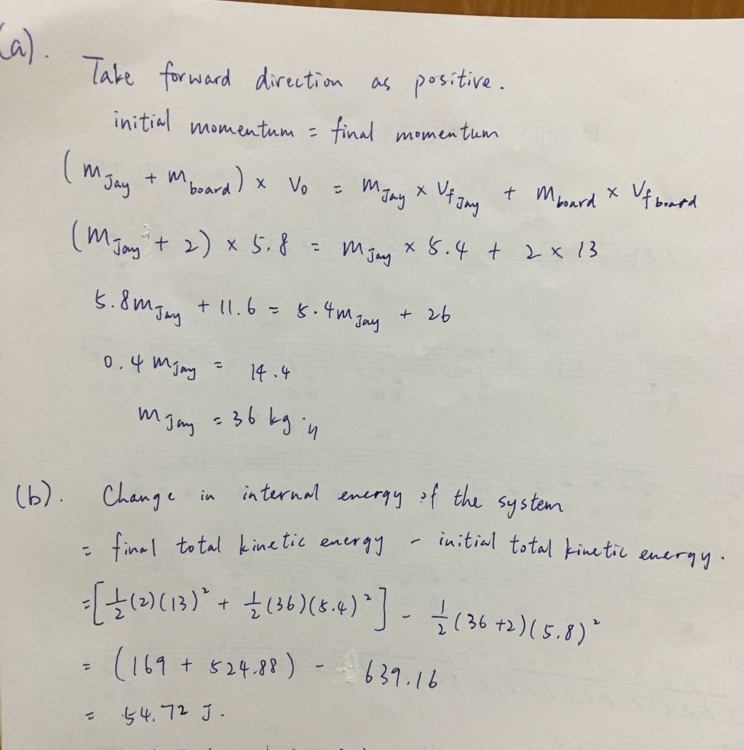 (a).
Take forward direction as positive.
initial momentum = final momentum
(m_Jay + m_board) × V₀ = m_Jay × V_f Jay + m_board × V_f board
(m_Jay + 2) × 5.8 = m_Jay × 5.4 + 2 × 13
5.8m_Jay + 11.6 = 5.4m_Jay + 26
0.4 m_Jay = 14.4
m_Jay = 36 kg.//
(b). Change in internal energy of the system
= final total kinetic energy - initial total kinetic energy.
=[½(2)(13)² + ½(36)(5.4)²] - ½(36+2)(5.8)²
= (169 + 524.88) - 639.16
= 54.72 J.